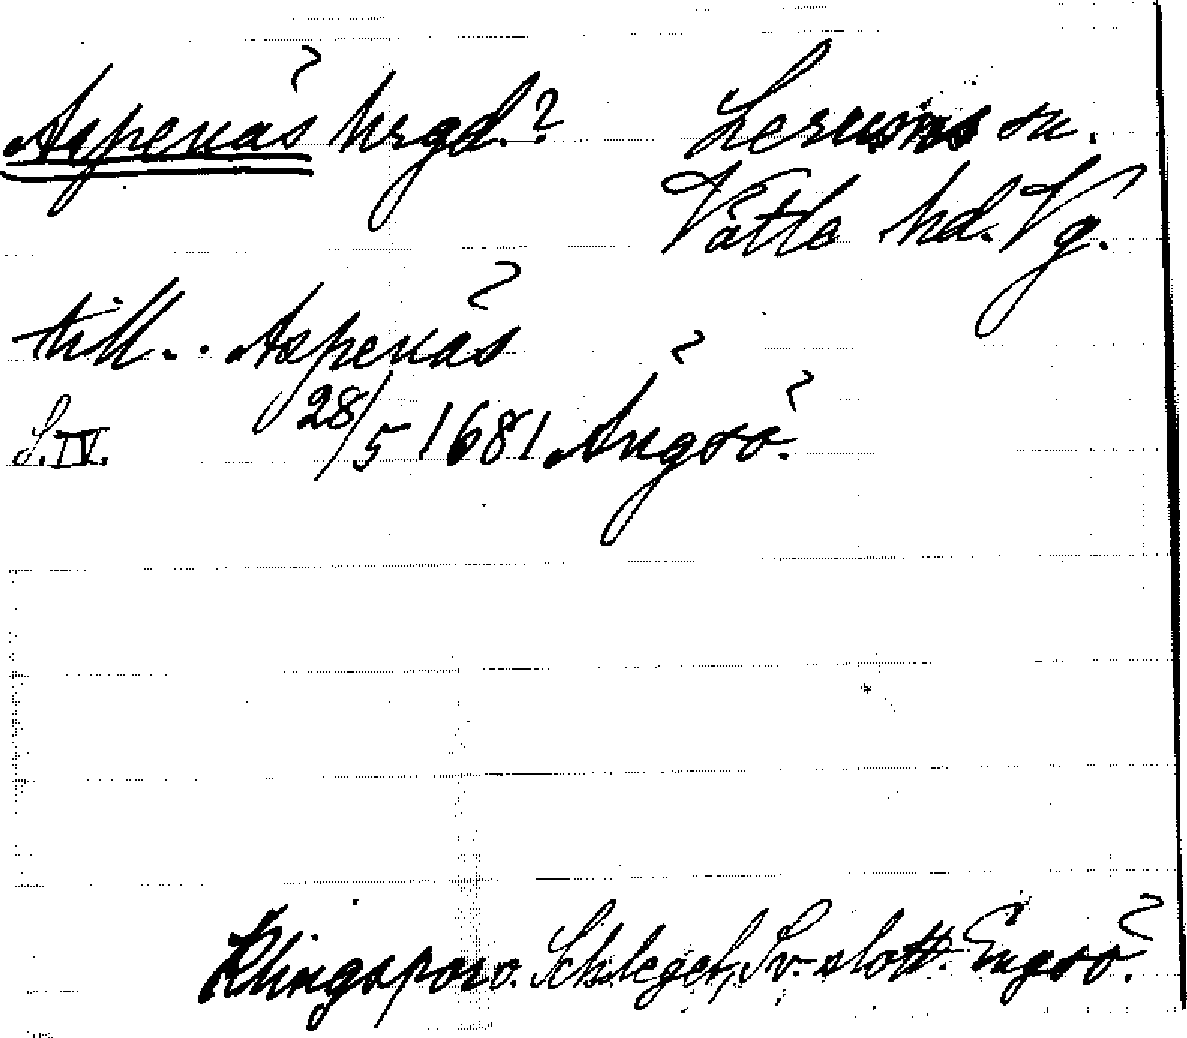 Aspenäs hrgd.? Lerums sn.
Vättle hd. Vg.
till.. Aspenäs
S.IV. 28/5 1681 Ängsö.
Klingspor o. Schlegel, Sv. slott. Engsö.